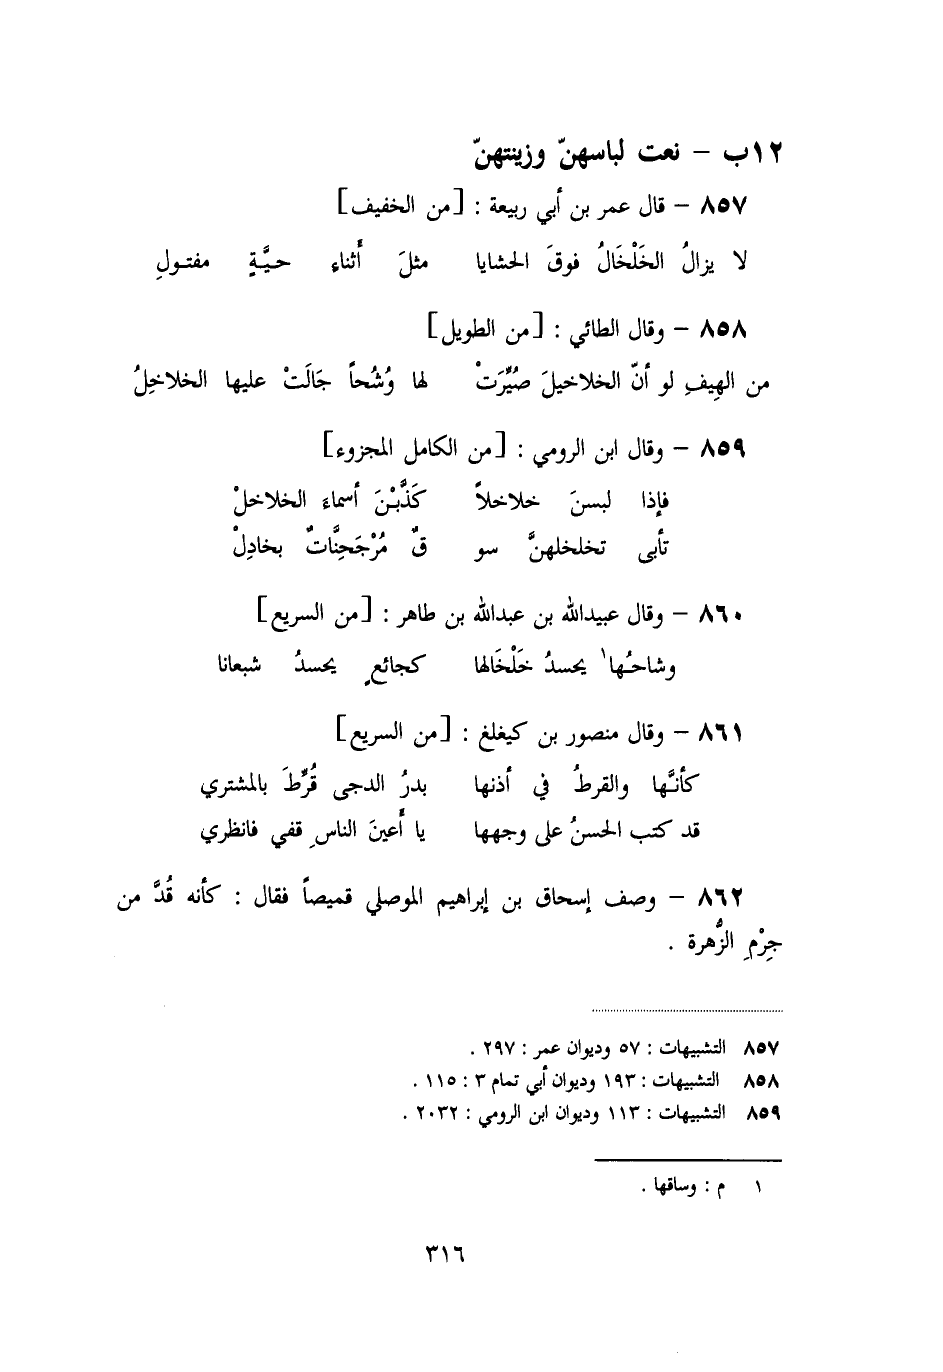 ١٢ب – نعت لباسهنّ وزينتهنّ
٨٥٧ – قال عمر بن أبي ربيعة : [من الخفيف]
لا يزالُ الخَلْخَالُ فوقَ الحشايا مثلَ أَثناءِ حيَّةٍ مفتولِ
٨٥٨ – وقال الطائي : [من الطويل]
من الهِيفِ لو أنّ الخلاخيلَ صُيِّرَتْ لها وُشُحاً جَالَتْ عليها الخلاخِلُ
٨٥٩ – وقال ابن الرومي : [من الكامل المجزوء]
فإذا لبسنَ خلاخلاً كَذَّبْنَ أسماءَ الخلاخلْ
تأبى تخلخلهنَّ سو قٌ مُرْجَحِنَّاتٌ بخادِلْ
٨٦٠ – وقال عبيدالله بن عبدالله بن طاهر : [من السريع]
وشاحُها١ يحسدُ خَلْخَالها كجائعٍ يحسدُ شبعانا
٨٦١ – وقال منصور بن كيغلغ : [من السريع]
كأنَّها والقرطُ في أذنها بدرُ الدجى قُرِّطَ بالمشتري
قد كتب الحسنُ على وجهها يا أَعينَ الناسِ قفي فانظري
٨٦٢ – وصف إسحاق بن إبراهيم الموصلي قميصاً فقال : كأنه قُدَّ من
جِرْمِ الزُّهرة .
٨٥٧ التشبيهات : ٥٧ وديوان عمر : ٢٩٧ .
٨٥٨ التشبيهات : ١٩٣ وديوان أبي تمام ٣ : ١١٥ .
٨٥٩ التشبيهات : ١١٣ وديوان ابن الرومي : ٢٠٣٢ .
١ م : وساقها .
٣١٦